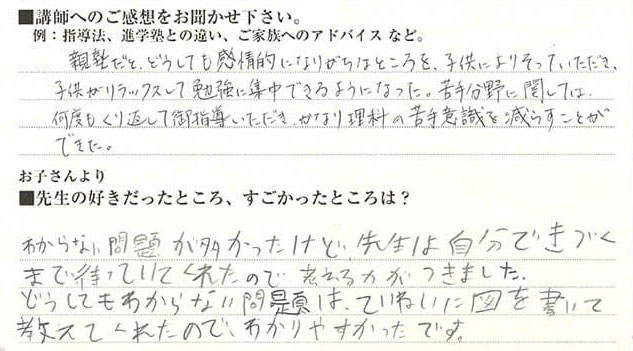 ■講師へのご感想をお聞かせ下さい。
例：指導法、進学塾との違い、ご家族へのアドバイス など。
親塾だと、どうしても感情的になりがちなところを、子供によりそっていただき、
子供がリラックスして勉強に集中できるようになった。苦手分野に関しては、
何度もくり返して御指導いただき、かなり理科の苦手意識を減らすことが
できた。
お子さんより
■先生の好きだったところ、すごかったところは？
わからない問題が多かったけど、先生は自分できづく
まで待っていてくれたので考える力がつきました。
どうしてもわからない問題は、ていねいに図を書いて
教えてくれたので、わかりやすかったです。